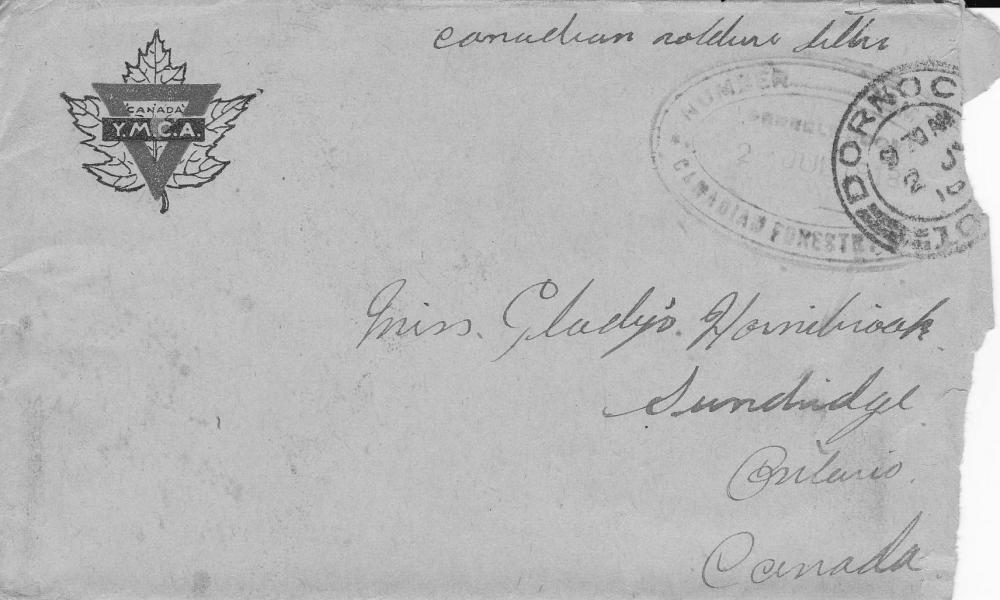 canadian soldiers letter
CANADA
Y.M.C.A.
NUMBER
2 JUN
CANADIAN FORESTRY
DORNOC
Miss. Gladys. Hornibrook
Sundridge
Ontario.
Canada